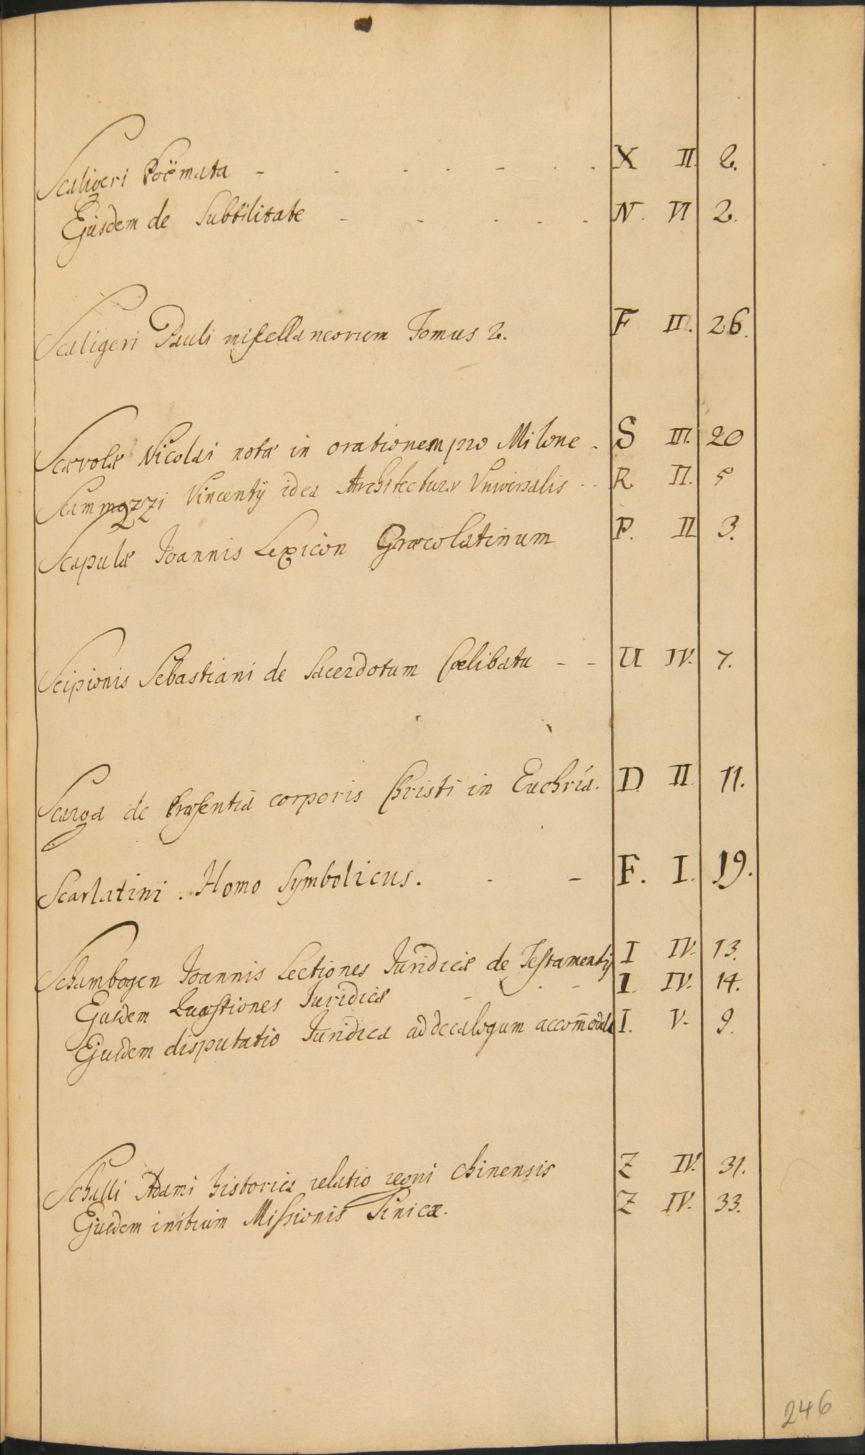 Scaligeri Poëmata - . . . - . . X II. 2.
Ejusdem de Subtilitate - . . . . N. VI 2.
Scaligeri Pauli miscellaneorum Tomus 2. F II. 26.
Scævolæ Nicolai notæ in orationem pro Milone . S III. 20
Scammozzi Vincentij idea Architecturæ Vniversalis . . R. II. 5
Scapulæ Joannis Lexicon Græcolatinum P. II 3.
Scipionis Sebastiani de Sacerdotum Cœlibatu - - U IV. 7.
Scarga de Præsentia corporis Christi in Euchria. D II. 11.
Scarlatini . Homo Symbolicus. . - F. I. 19.
Schambogen Joannis Lectiones Juridicæ de Testamentis I IV. 13.
Ejusdem Quæstiones Juridicæ - . - - I. IV. 14.
Ejusdem disputatio Juridica ad decalogum accom̄odata I. V. 9.
Schalli Adami historica relatio regni chinensis Z IV. 31.
Ejusdem initium Missionis Sinicæ. Z IV. 33.
246